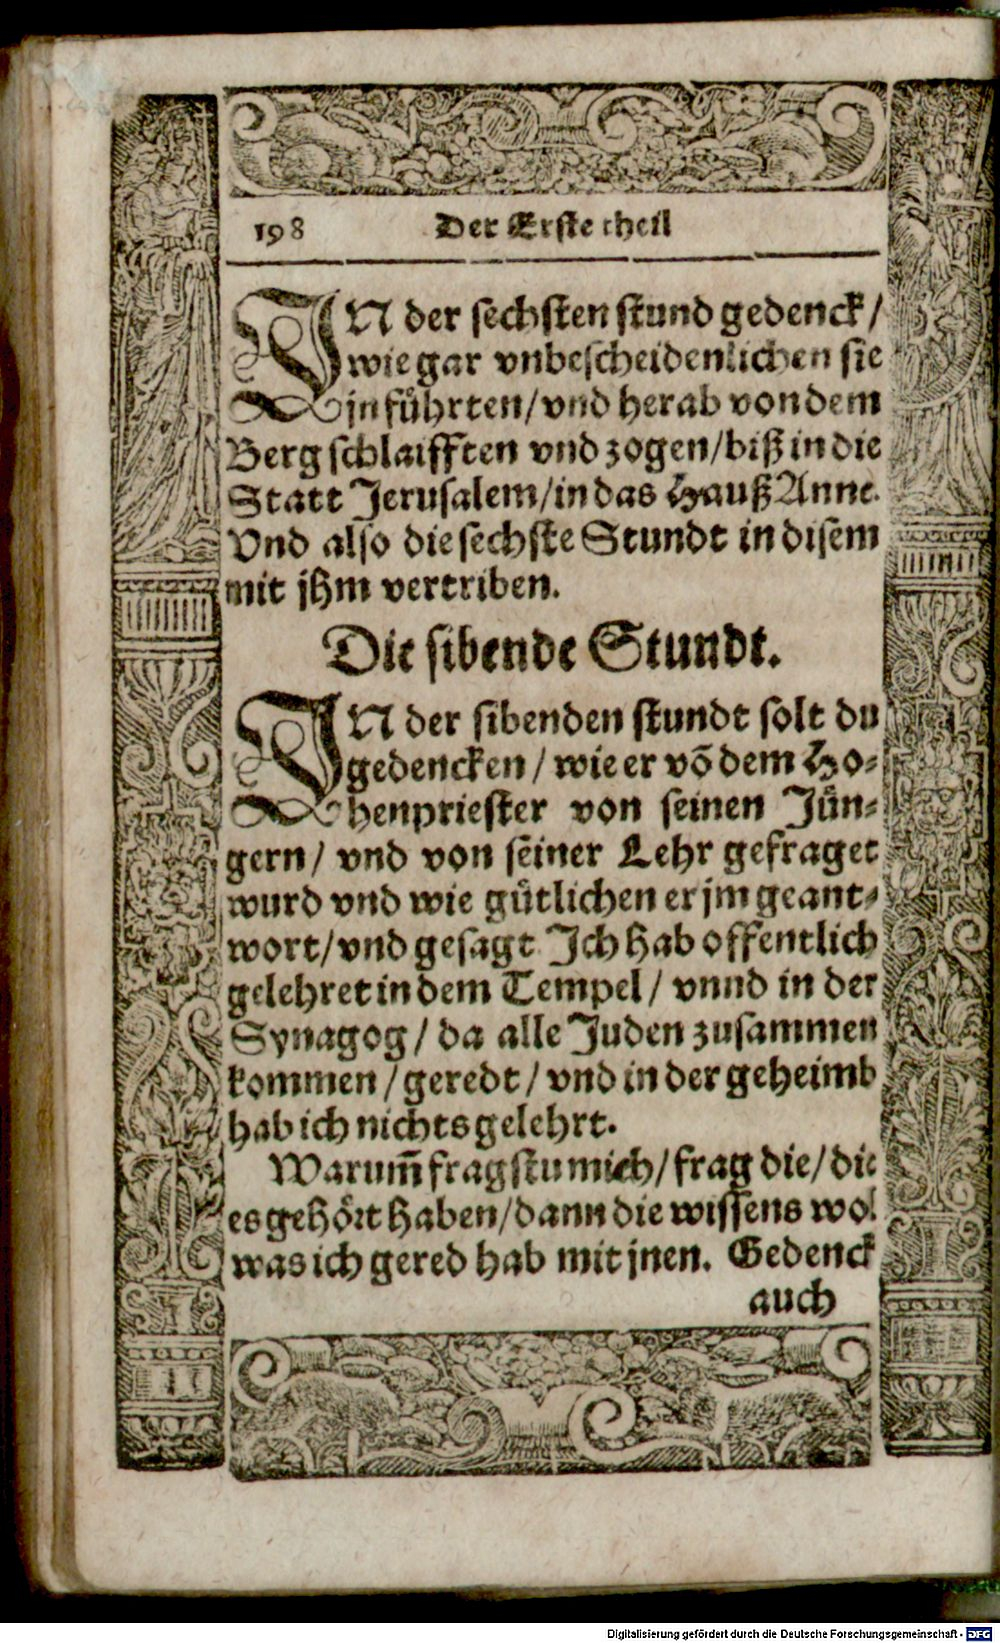 198 Der Erste theil
IN der sechsten stund gedenck /
wie gar vnbescheidenlichen sie
jn fuͤhrten / vnd herab von dem
Berg schlaifften vnd zogen / biß in die
Statt Jerusalem / in das Hauß Anne.
Vnd also die sechste Stundt in disem
mit jhm vertriben.
Die sibende Stundt.
IN der sibenden stundt solt du
gedencken / wie er võ dem Ho-
henpriester von seinen Jüngern
gern / vnd von seiner Lehr gefraget
wurd vnd wie guͤtlichen er jm geant-
wort / vnd gesagt Ich hab offentlich
gelehret in dem Tempel / vnnd in der
Synagog / da alle Juden zusammen
kommen / geredt / vnd in der geheimb
hab ich nichts gelehrt.
Warum̃ fragstu mich / frag die / die
es gehoͤrt haben / dann die wissens wol
was ich gered hab mit jnen. Gedenck
auch
Digitalisierung gefördert durch die Deutsche Forschungsgemeinschaft - DFG